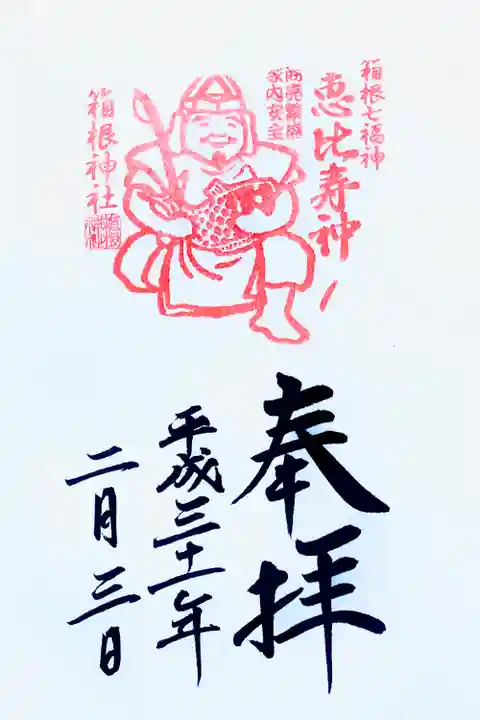 箱根七福神
恵比寿神
商売繁盛
家内安全
箱根神社
奉拝
平成三十一年
二月三日